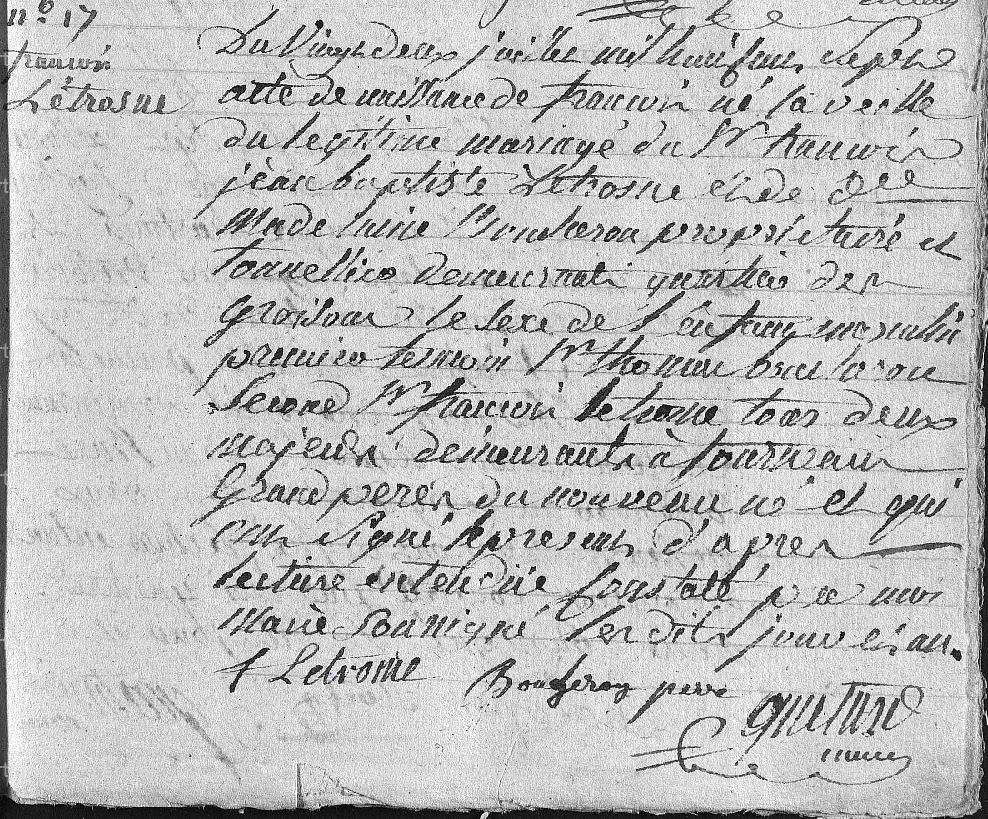 n° 17
francois
Létrosne
Du Vingt deux juillet mil huit cent sept
acte de naissance de francois né la veille
du legitime mariage du Sr francois
jean baptiste Letrosne et de Dlle
Madelaine Boucheron propriétaire et
tonnellier demeurant quartier des
groison le sexe de l'enfant masculin
premier temoin Sr thomas boucheron
second Sr francois letrosne tous deux
majeurs demeurants à
Grand peres du nouveau né et qui
ont signé le present d'apres
lecture entendüe Constaté par moi
Maire Soussigné Les dits jour et an.
f Letrosne
Boucheron pere
guittard
maire